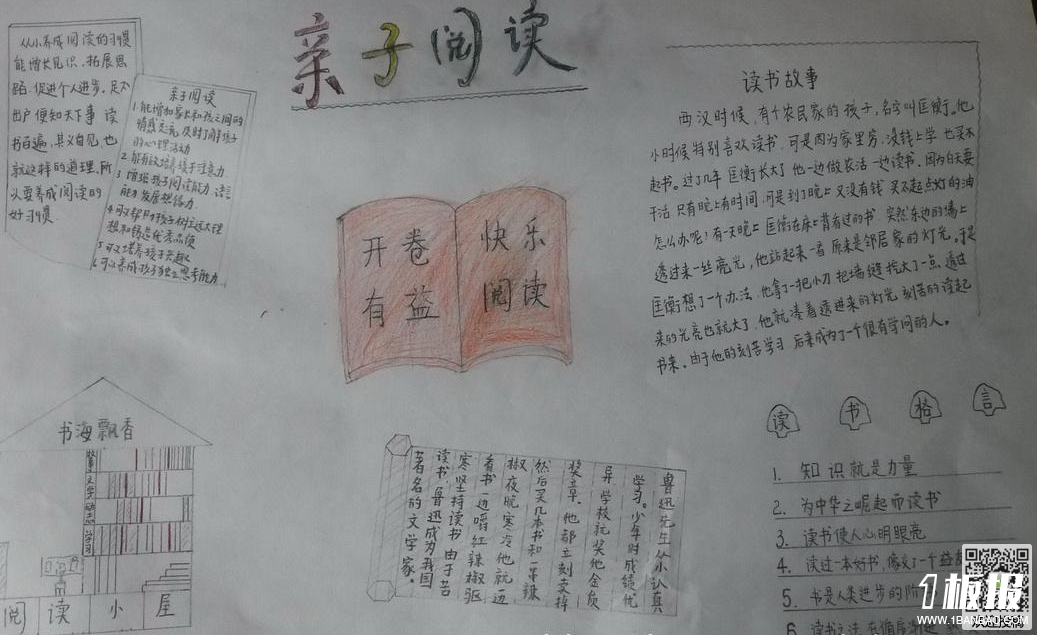 亲子阅读
从小养成阅读的习惯
能增长见识，拓展思
路，促进个人进步。足不
出户便知天下事 读
书百遍，其义自见，也
就这样的道理。所
以要养成阅读的
好习惯
亲子阅读
1、能增加家长和孩子之间的
情感交流 及时了解孩子
的心理活动
2、能有效培养孩子注意力
3、增强孩子阅读能力、语言
能力 发展想象力
4、可以帮助孩子树立远大理
想和锻造优秀品质
5、可以培养孩子兴趣
6、可以养成孩子独立思考能力
开卷
有益
快乐
阅读
读书故事
西汉时候，有个农民家的孩子，名字叫匡衡。他
小时候特别喜欢读书，可是因为家里穷，没钱上学 也买不
起书。过了几年 匡衡长大了 他一边做农活一边读书。因为白天要
干活 只有晚上有时间，可是到了晚上 又没有钱 买不起点灯的油
怎么办呢？有一天晚上 匡衡在床上背看过的书，突然东边的墙上
透过来一丝亮光，他站起来一看 原来是邻居家的灯光，于是
匡衡想了一个办法，他拿了一把小刀 把墙缝挖大了一点，透过
来的光亮也就大了，他就凑着透进来的灯光 刻苦的读起
书来，由于他的刻苦学习 后来成为了一个很有学问的人。
书海飘香
故事
文学
学习
阅读小屋
鲁迅先生从小认真
学习。少年时成绩优
异 学校就奖他金质
奖章，他都立刻卖掉
然后买几本书和一串辣
椒 夜晚寒冷他就边
看书 一边嚼红辣椒驱
寒坚持读书 由于苦
读书，鲁迅成为我国
著名的文学家。
读书格言
1、知识就是力量
2、为中华之崛起而读书
3、读书使人心明眼亮
4、读过一本好书，像交了一个益友
5、书是人类进步的阶
6、读书之法 在循序
1板报
WWW.1BANBAO.COM